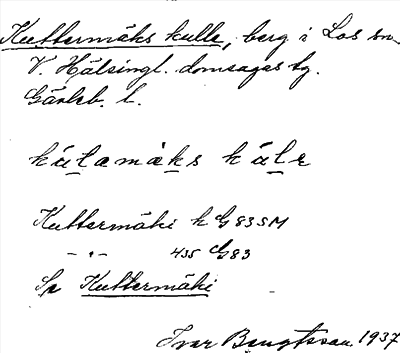 Kuttermäks kulle, berg i Los sn.
V. Hälsingl. domsagas tg.
Gävleb. l.
kútamàks kúle
Kuttermäki k G 83 SM
– " – 435 G 83
Se Kuttermäki
Ivar Bengtsson 1937